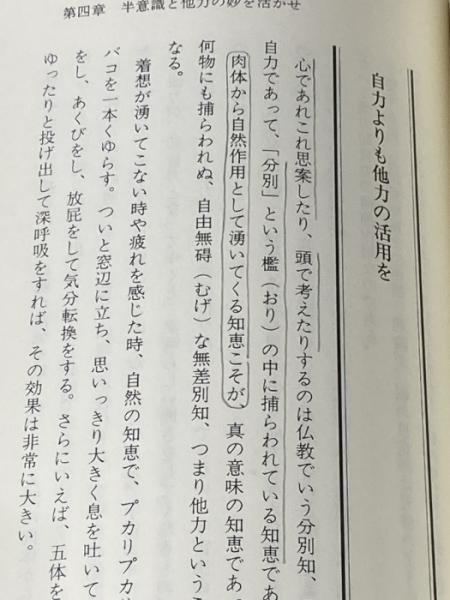 第四章 半意識と他力の妙を活かせ
自力よりも他力の活用を
心であれこれ思案したり、頭で考えたりするのは仏教でいう分別知、
自力であって、「分別」という檻（おり）の中に捕らわれている知恵であ
肉体から自然作用として湧いてくる知恵こそが、真の意味の知恵であっ
何物にも捕らわれぬ、自由無碍（むげ）な無差別知、つまり他力という
なる。
着想が湧いてこない時や疲れを感じた時、自然の知恵で、プカリプカ
バコを一本くゆらす。ついと窓辺に立ち、思いっきり大きく息を吐いて
をし、あくびをし、放屁をして気分転換をする。さらにいえば、五体を
ゆったりと投げ出して深呼吸をすれば、その効果は非常に大きい。